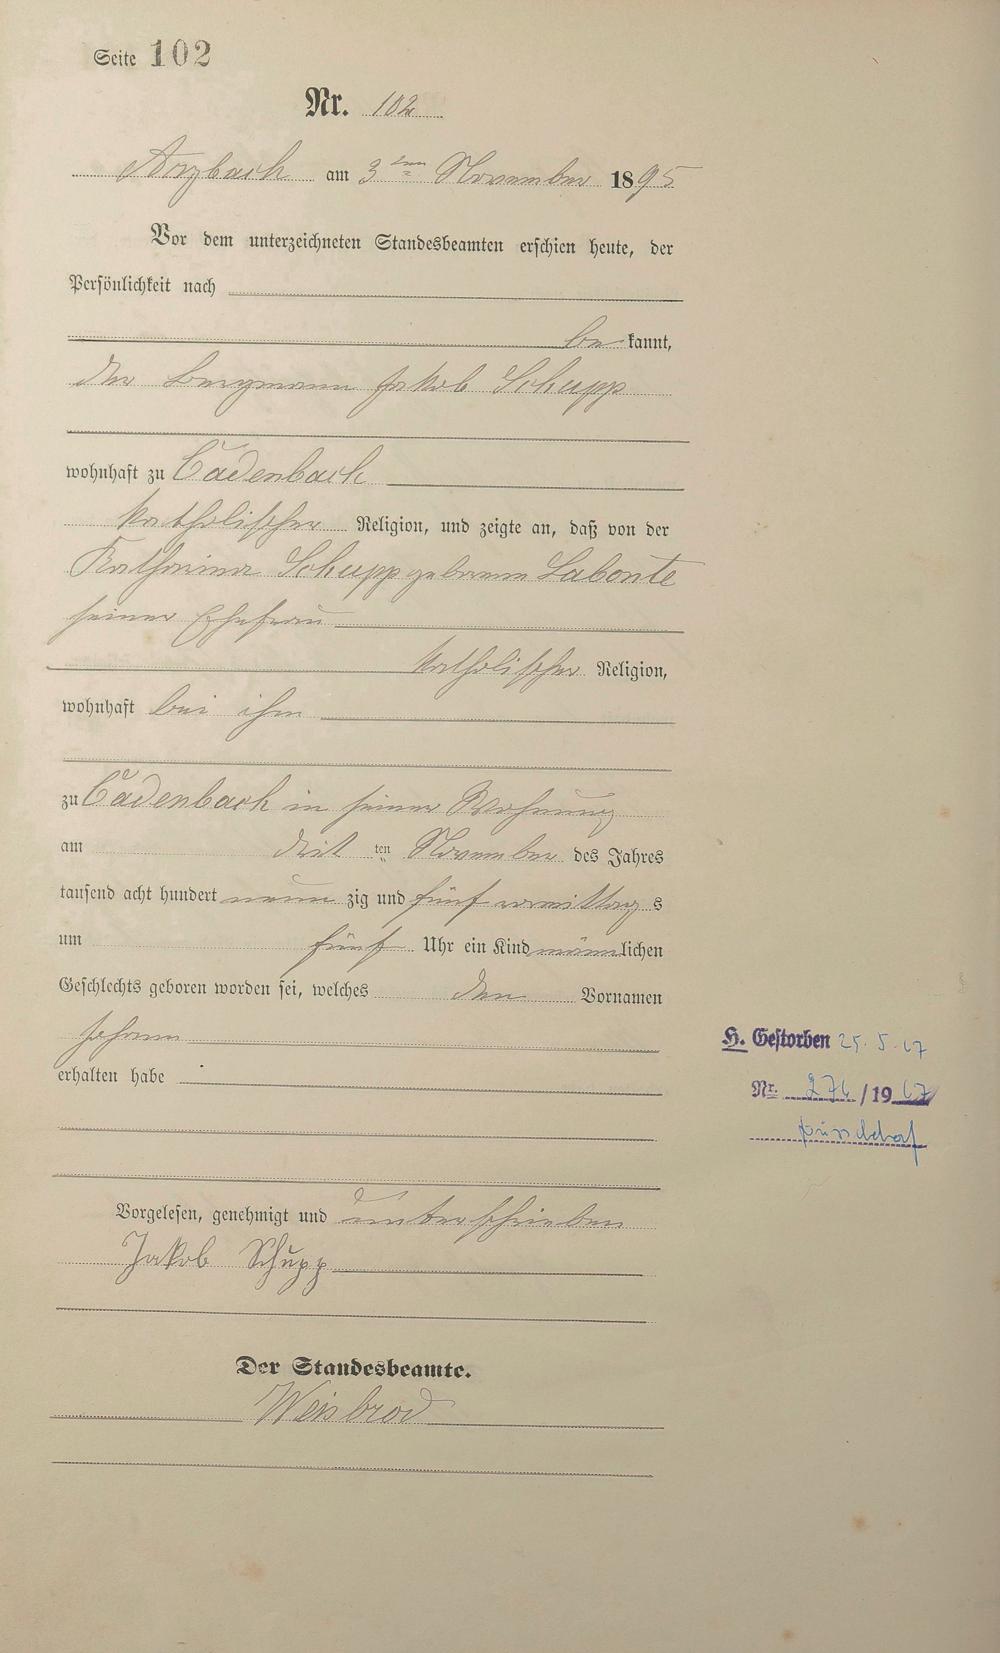 Seite 102
Nr. 102
Arzbach am 3ten November 1895
Vor dem unterzeichneten Standesbeamten erschien heute, der
Persönlichkeit nach
be kannt,
der Bergmann Jakob Schupp
wohnhaft zu Cadenbach
katholischer Religion, und zeigte an, daß von der
Katharina Schupp geborenen Labonte
seiner Ehefrau
katholischer Religion,
wohnhaft bei ihm
zu Cadenbach in seiner Wohnung
am drit ten November des Jahres
tausend acht hundert neun zig und fünf vormittag s
um fünf Uhr ein Kind männlichen
Geschlechts geboren worden sei, welches den Vornamen
Johann
H. Gestorben 25. 5. 67
erhalten habe
Nr. 276/1967
Düsseldorf
Vorgelesen, genehmigt und unterschrieben
Jakob Schupp
Der Standesbeamte.
Weisbrod